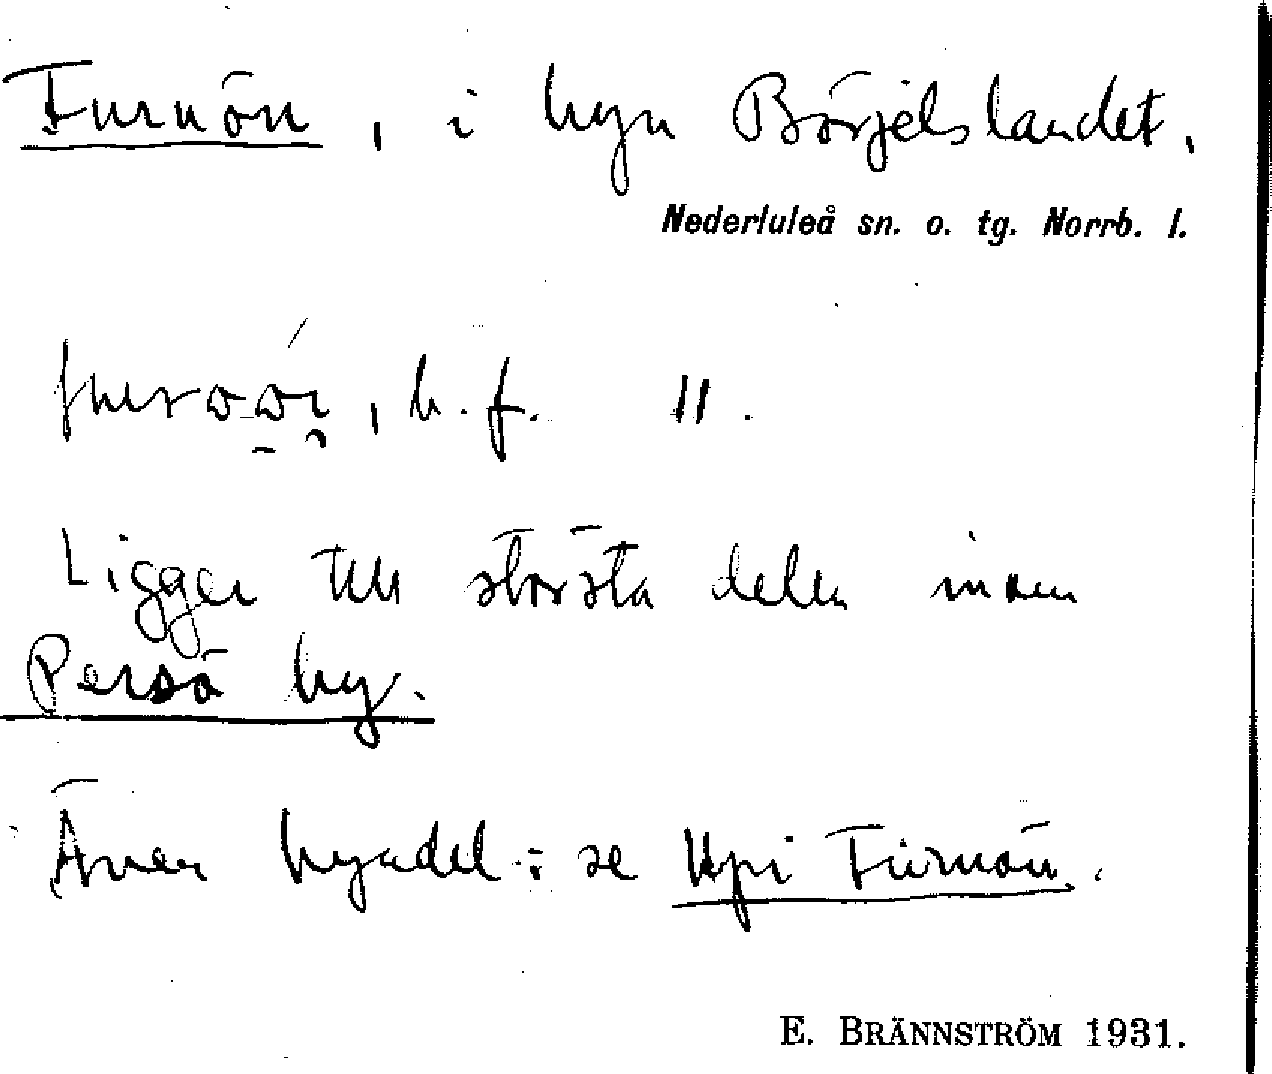 Furuön, i byn Börjelslandet.
Nederluleå sn. o. tg. Norrb. l.
b. f. 11.
Ligger till största delen inom
Persö by.
Även byadel: se Upi Furuön.
E. BRÄNNSTRÖM 1931.